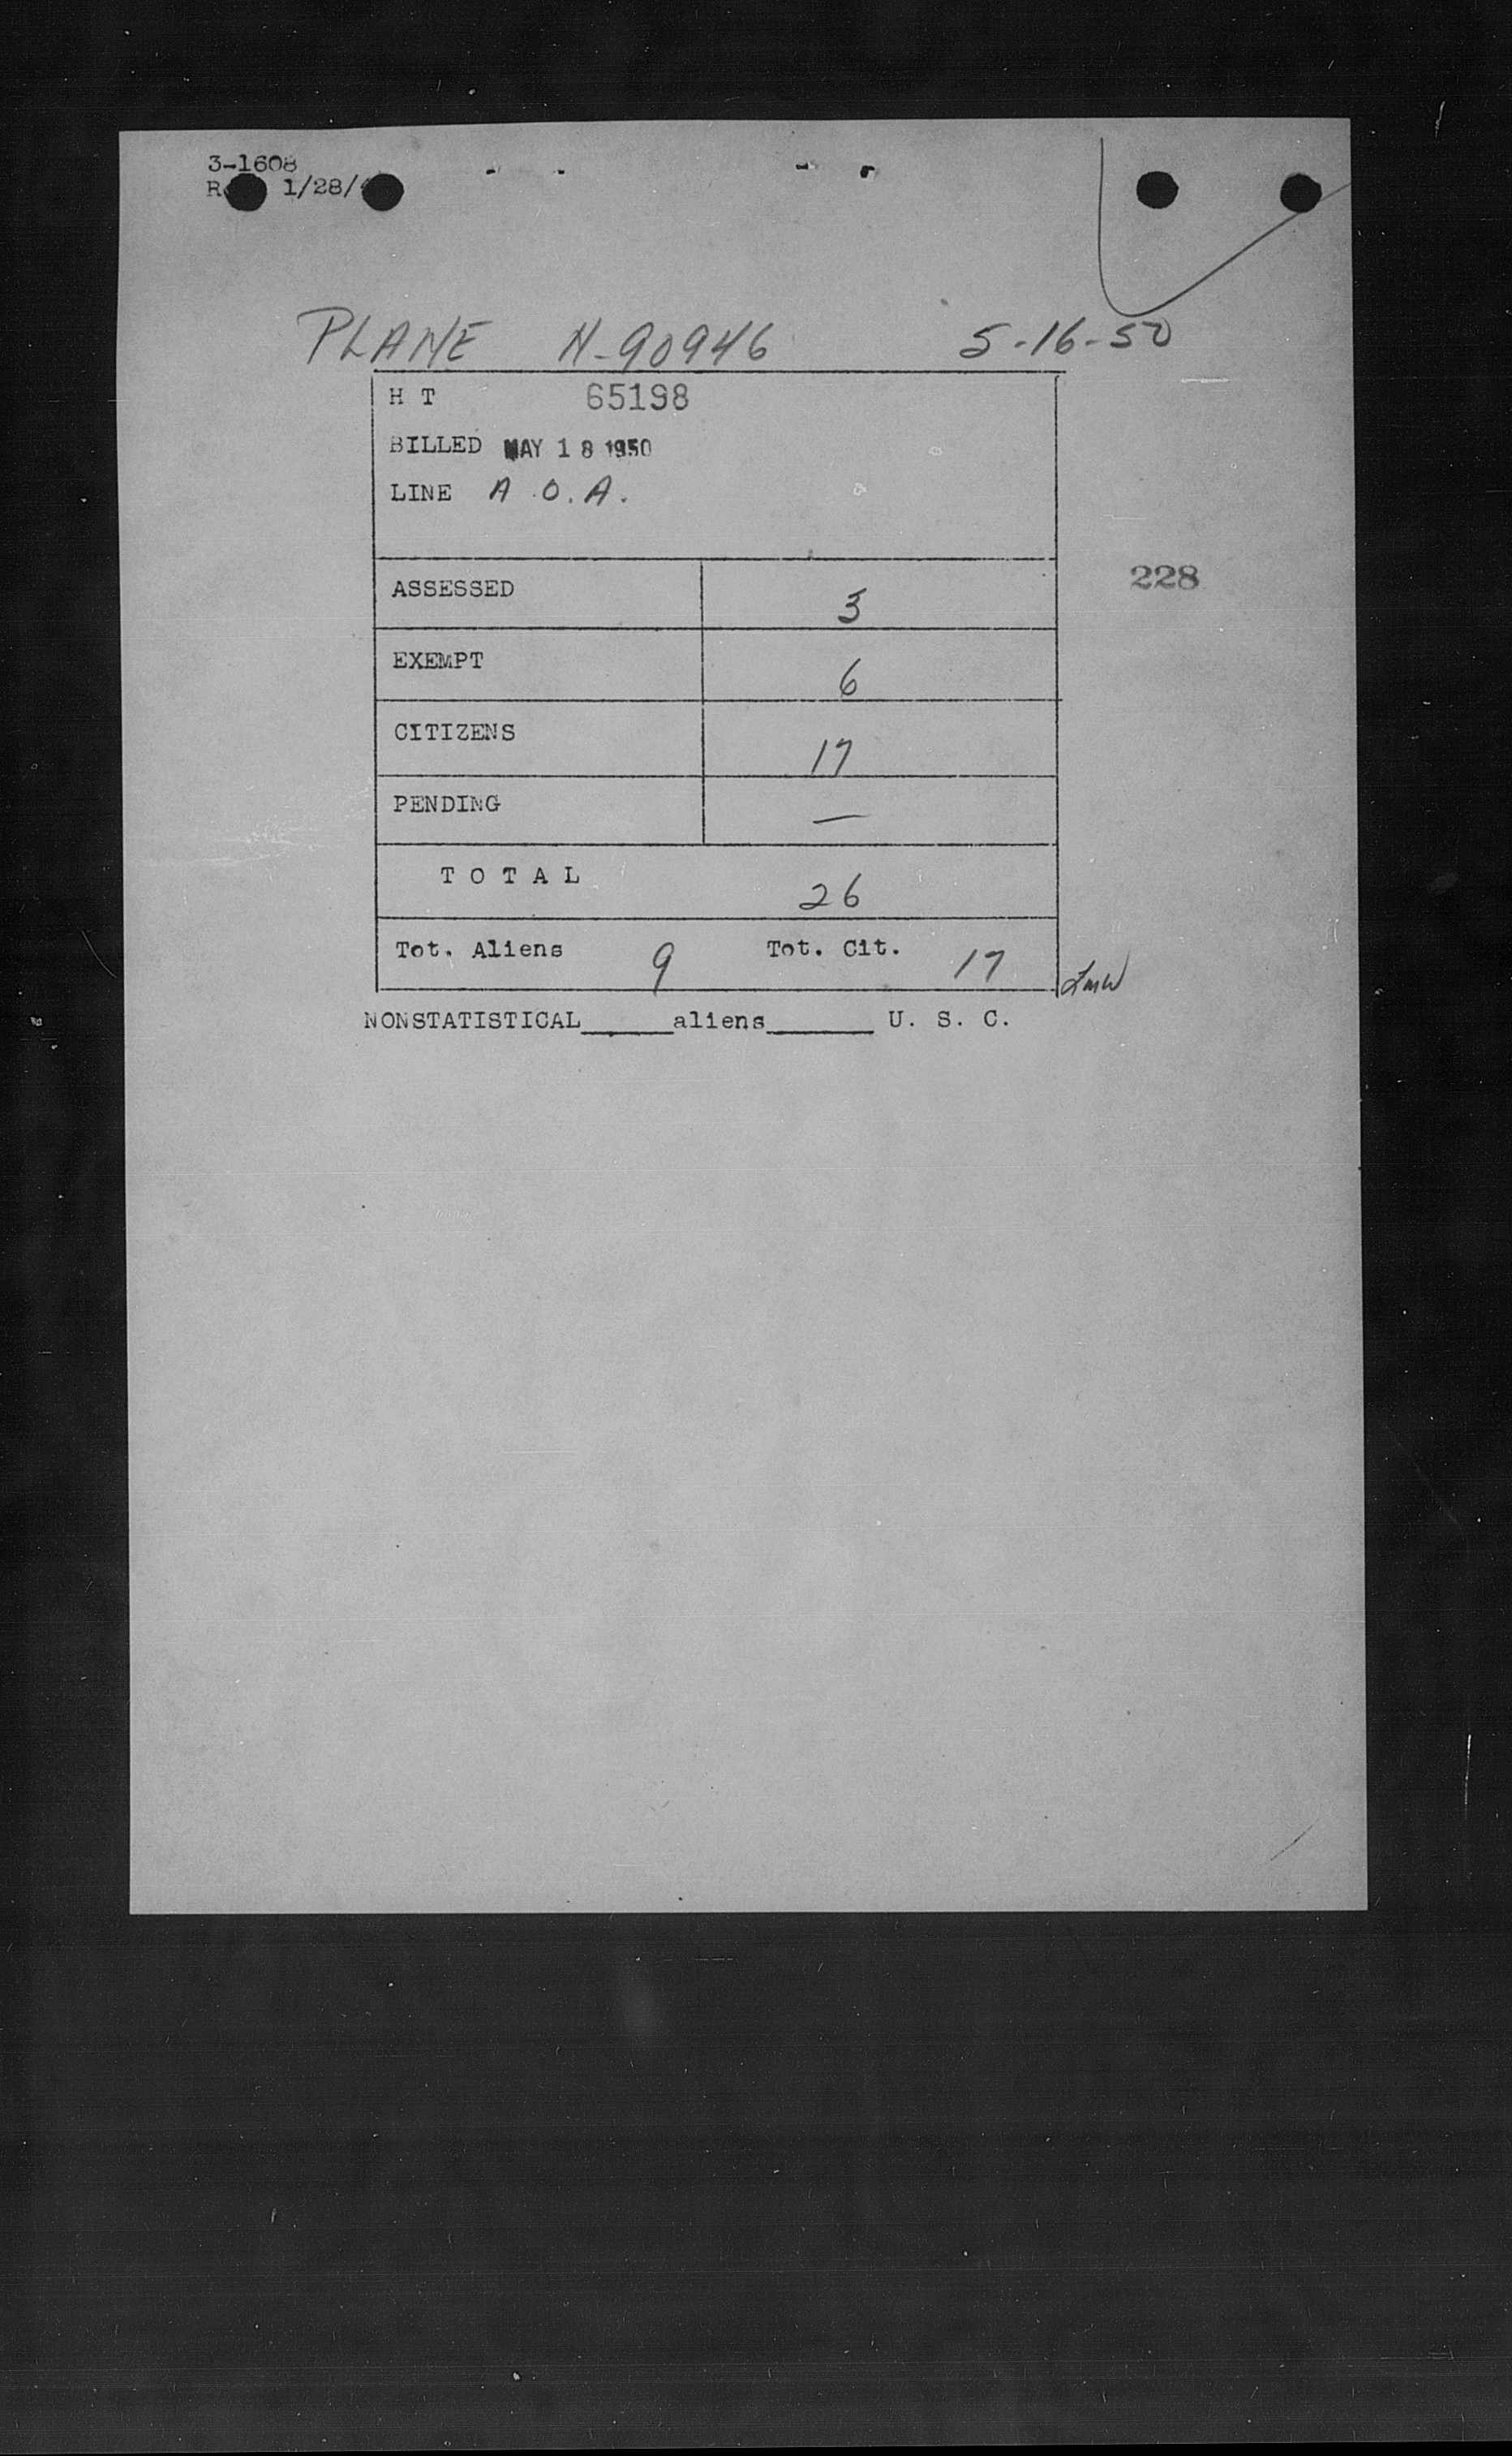 3-1608
1/28/
PLANE N-90946 5-16-50
H T 65198
BILLED MAY 18 1950
LINE A.O.A.
228
ASSESSED 3
EXEMPT 6
CITIZENS 17
PENDING —
T O T A L 26
Tot. Aliens 9 Tot. Cit. 17
NONSTATISTICAL______aliens_______ U. S. C.